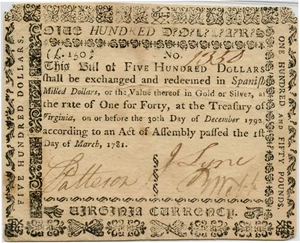 HUNDRED
£.150.] No.
This Bill of FIVE HUNDRED DOLLARS
shall be exchanged and redeemed in Spanish
Milled Dollars, or the Value thereof in Gold or Silver, at
the rate of One for Forty, at the Treasury of
Virginia, on or before the 30th Day of December 1792,
according to an Act of Assembly passed the 1st
Day of March, 1781.
J Lyne
VIRGINIA CURRENCY.
FIVE HUNDRED DOLLARS.
ONE HUNDRED AND FIFTY POUNDS.